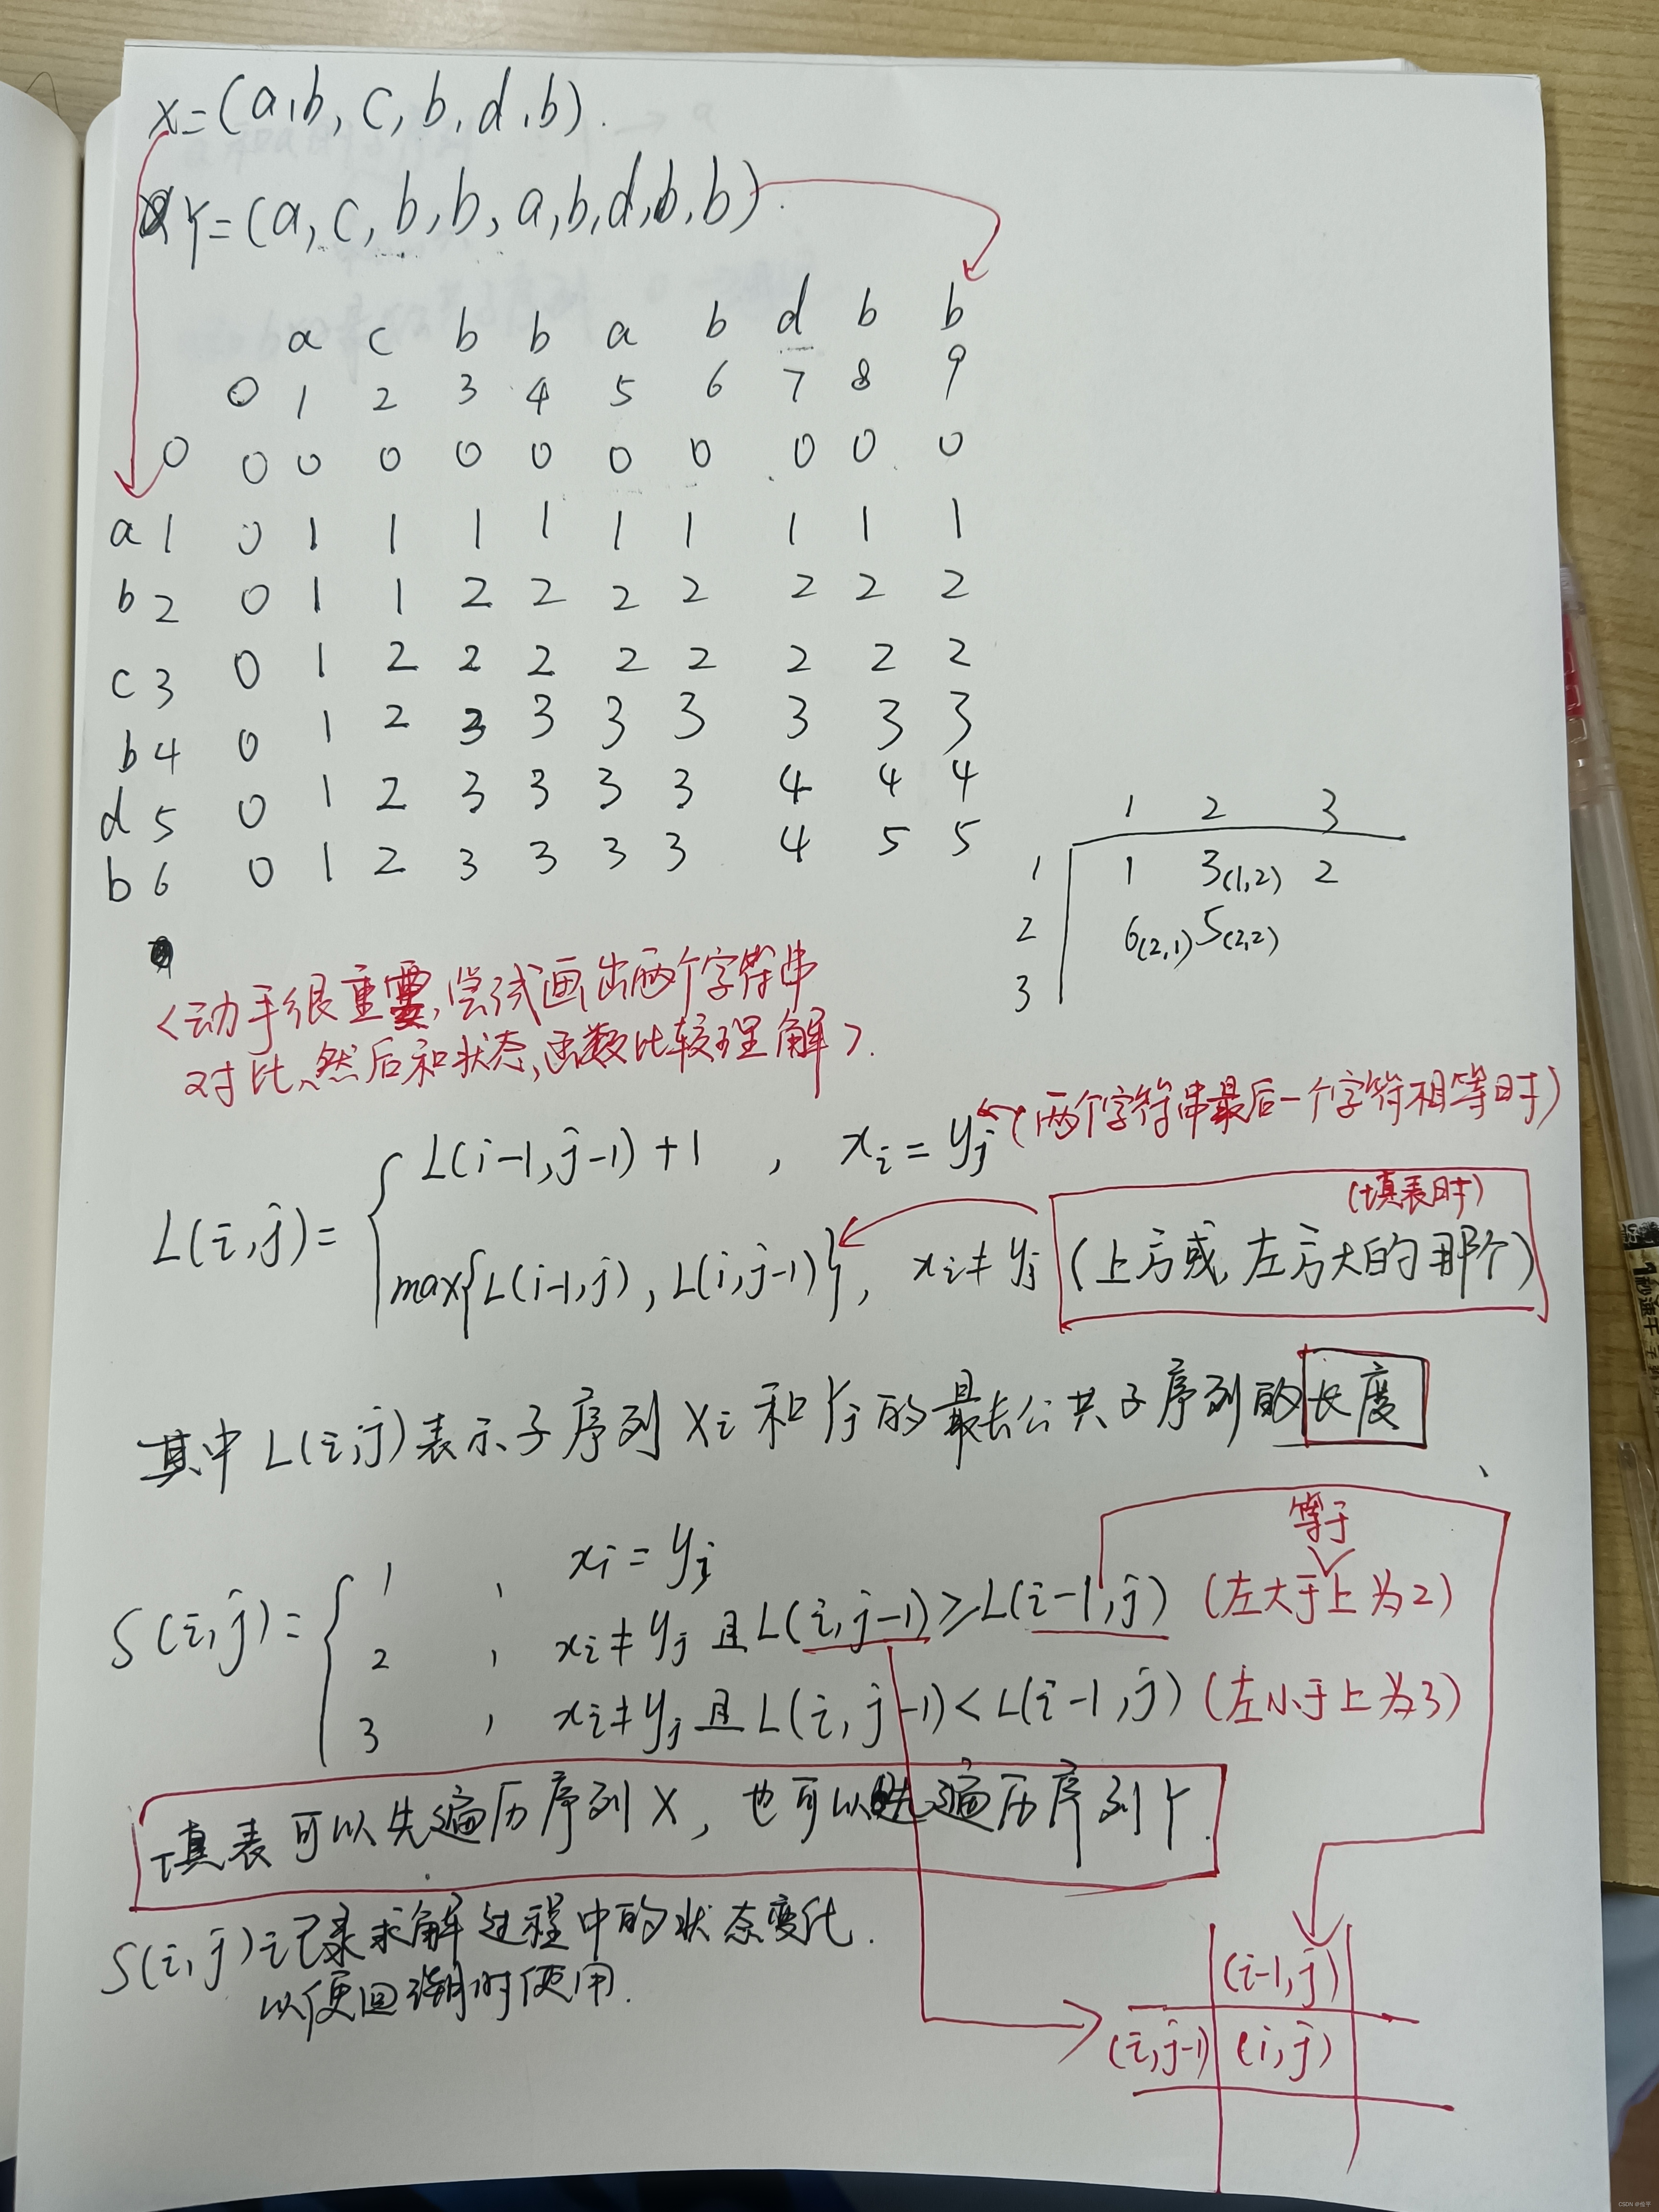 X=(a,b,c,b,d,b).
Y=(a,c,b,b,a,b,d,b,b).
a c b b a b d b b
0 1 2 3 4 5 6 7 8 9
0 0 0 0 0 0 0 0 0 0 0
a 1 0 1 1 1 1 1 1 1 1 1
b 2 0 1 1 2 2 2 2 2 2 2
c 3 0 1 2 2 2 2 2 2 2 2
b 4 0 1 2 3 3 3 3 3 3 3
d 5 0 1 2 3 3 3 3 4 4 4
b 6 0 1 2 3 3 3 3 4 5 5
1 2 3
1 1 3(1,2) 2
2 6(2,1) 5(2,2)
3
<动手很重要,尝试画出两个字符串
对比、然后和状态,函数比较理解>.
L(i,j)={ L(i-1,j-1)+1 , xi=yj (两个字符串最后一个字符相等时)
(填表时)
max{L(i-1,j),L(i,j-1)}, xi≠yj (上方或左方大的那个)
其中L(i,j)表示子序列Xi和Yj的最长公共子序列的长度
等于
S(i,j)={ 1 , xi=yj
2 , xi≠yj且L(i,j-1)≥L(i-1,j) (左大于上为2)
3 , xi≠yj且L(i,j-1)<L(i-1,j) (左小于上为3)
填表可以先遍历序列X,也可以先遍历序列Y.
S(i,j)记录求解过程中的状态变化.
以便回溯时使用.
(i-1,j)
(i,j-1) (i,j)